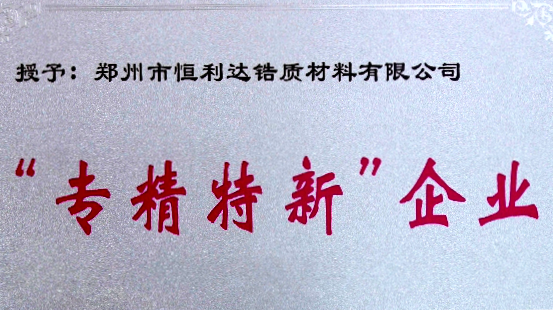 授予：郑州市恒利达锆质材料有限公司
“专精特新”企业